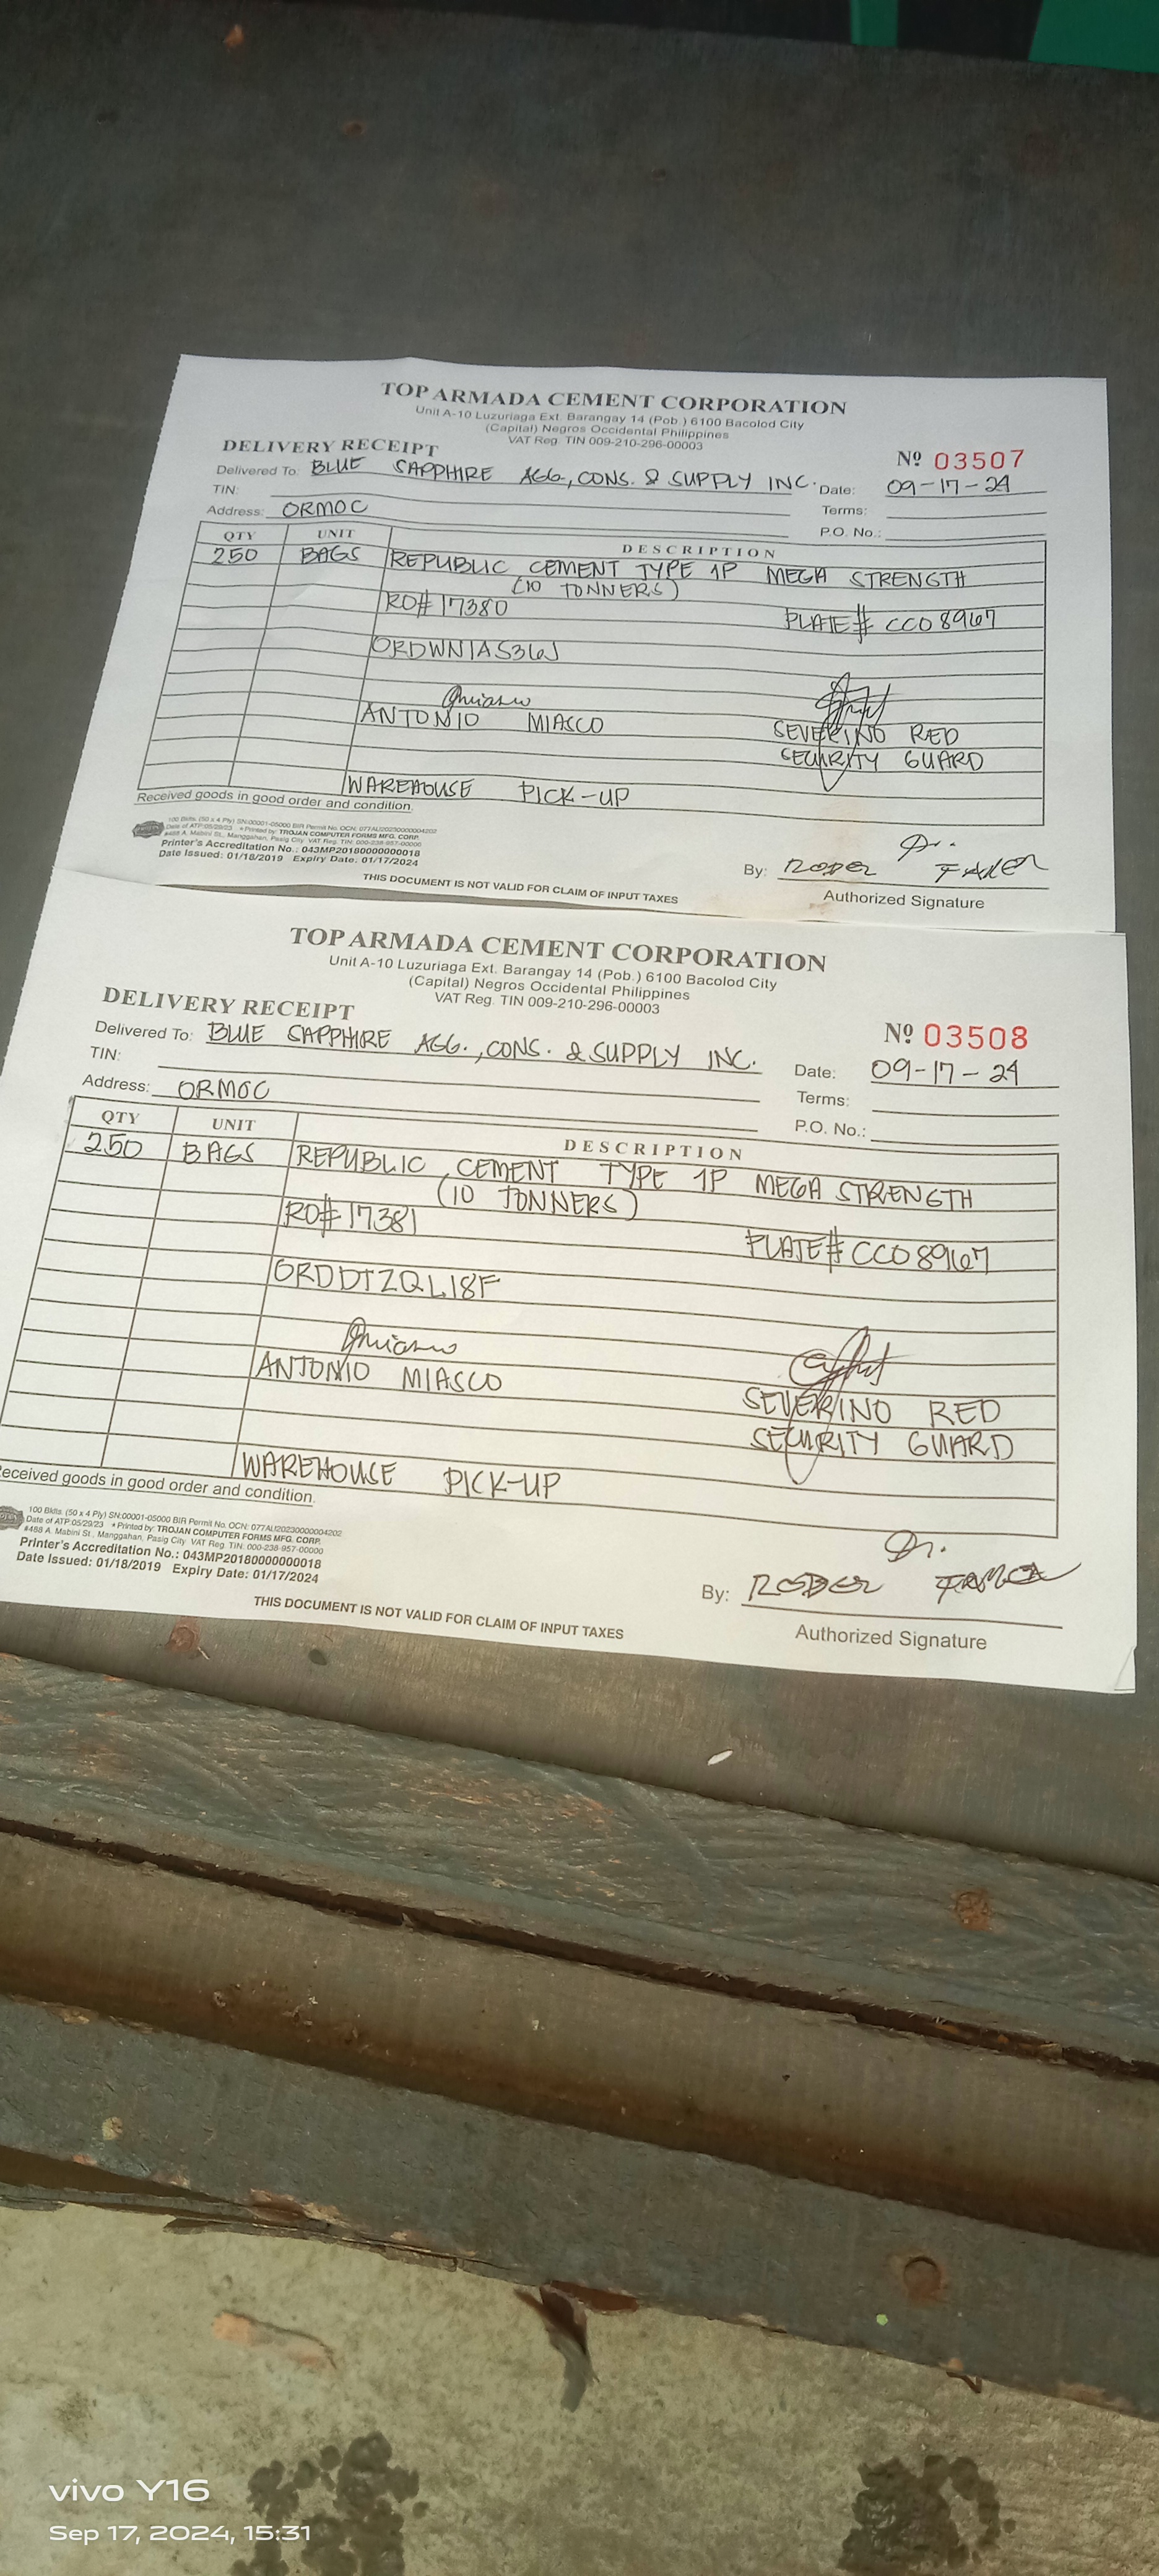 TOP ARMADA CEMENT CORPORATION
Unit A-10 Luzuriaga Ext. Barangay 14 (Pob.) 6100 Bacolod City
(Capital) Negros Occidental Philippines
VAT Reg. TIN 009-210-296-00003
DELIVERY RECEIPT
Nº 03507
Delivered To: BLUE SAPPHIRE AGG., CONS. & SUPPLY INC.
Date: 09-17-24
TIN:
Terms:
Address: ORMOC
P.O. No.:
QTY UNIT DESCRIPTION
250 BAGS REPUBLIC CEMENT TYPE 1P MEGA STRENGTH
(10 TONNERS)
RO# 17380 PLATE# CCO 8967
ANTONIO MIASCO SEVERINO RED
SECURITY GUARD
WAREHOUSE PICK-UP
Received goods in good order and condition.
100 Bklts. (50 x 4 Ply) SN:00001-05000 BIR Permit No. OCN: 077AU20230000004202
Date of ATP:05/29/23 * Printed by: TROJAN COMPUTER FORMS MFG. CORP.
#488 A. Mabini St., Manggahan, Pasig City VAT Reg. TIN: 000-238-957-00000
Printer's Accreditation No.: 043MP20180000000018
Date Issued: 01/18/2019 Expiry Date: 01/17/2024
THIS DOCUMENT IS NOT VALID FOR CLAIM OF INPUT TAXES
By:
Authorized Signature
TOP ARMADA CEMENT CORPORATION
Unit A-10 Luzuriaga Ext. Barangay 14 (Pob.) 6100 Bacolod City
(Capital) Negros Occidental Philippines
VAT Reg. TIN 009-210-296-00003
DELIVERY RECEIPT
Nº 03508
Delivered To: BLUE SAPPHIRE AGG., CONS. & SUPPLY INC.
Date: 09-17-24
TIN:
Terms:
Address: ORMOC
P.O. No.:
QTY UNIT DESCRIPTION
250 BAGS REPUBLIC CEMENT TYPE 1P MEGA STRENGTH
(10 TONNERS)
RO# 17381 PLATE# CCO 8967
ORDDTZQL18F
ANTONIO MIASCO SEVERINO RED
SECURITY GUARD
WAREHOUSE PICK-UP
eceived goods in good order and condition.
100 Bklts. (50 x 4 Ply) SN:00001-05000 BIR Permit No. OCN: 077AU20230000004202
Date of ATP:05/29/23 * Printed by: TROJAN COMPUTER FORMS MFG. CORP.
#488 A. Mabini St., Manggahan, Pasig City VAT Reg. TIN: 000-238-957-00000
Printer's Accreditation No.: 043MP20180000000018
Date Issued: 01/18/2019 Expiry Date: 01/17/2024
THIS DOCUMENT IS NOT VALID FOR CLAIM OF INPUT TAXES
By:
Authorized Signature
vivo Y16
Sep 17, 2024, 15:31